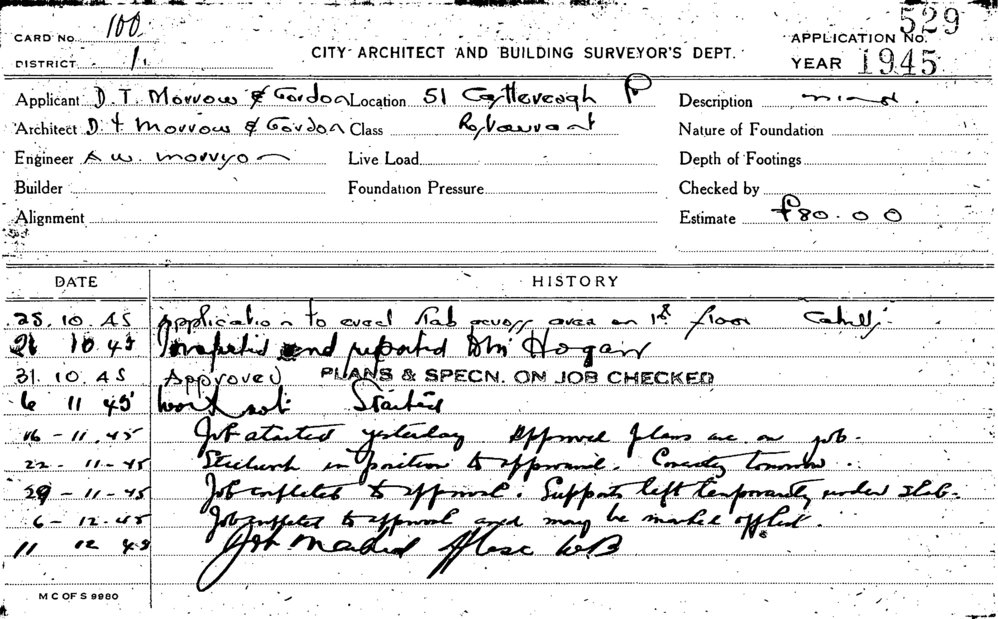 CARD No. 100
APPLICATION No. 529
DISTRICT 1.
CITY ARCHITECT AND BUILDING SURVEYOR'S DEPT.
YEAR 1945
Applicant D. T. Morrow & Gordon Location 51 Castlereagh Description
Architect D. T. Morrow & Gordon Class Restaurant Nature of Foundation
Engineer A W. Live Load Depth of Footings
Builder Foundation Pressure Checked by
Alignment Estimate £80.0 0
DATE HISTORY
25. 10. 45 Application to erect slab across area on 1st floor
10 45 Inspected and reported Mr Hogan
31. 10. 45 Approved PLANS & SPECN. ON JOB CHECKED
6 11 45 Work not Started
16 - 11. 45 Job started yesterday. Approved plans are on job.
22 - 11 - 45 Steelwork in position to approval. tomorrow.
29 - 11 - 45 Job completed to approval. Supports left temporarily under slab.
6 - 12. 45 Job completed to approval and may be marked off list.
11 12 45 Job Marked WB
M C OF S 9980